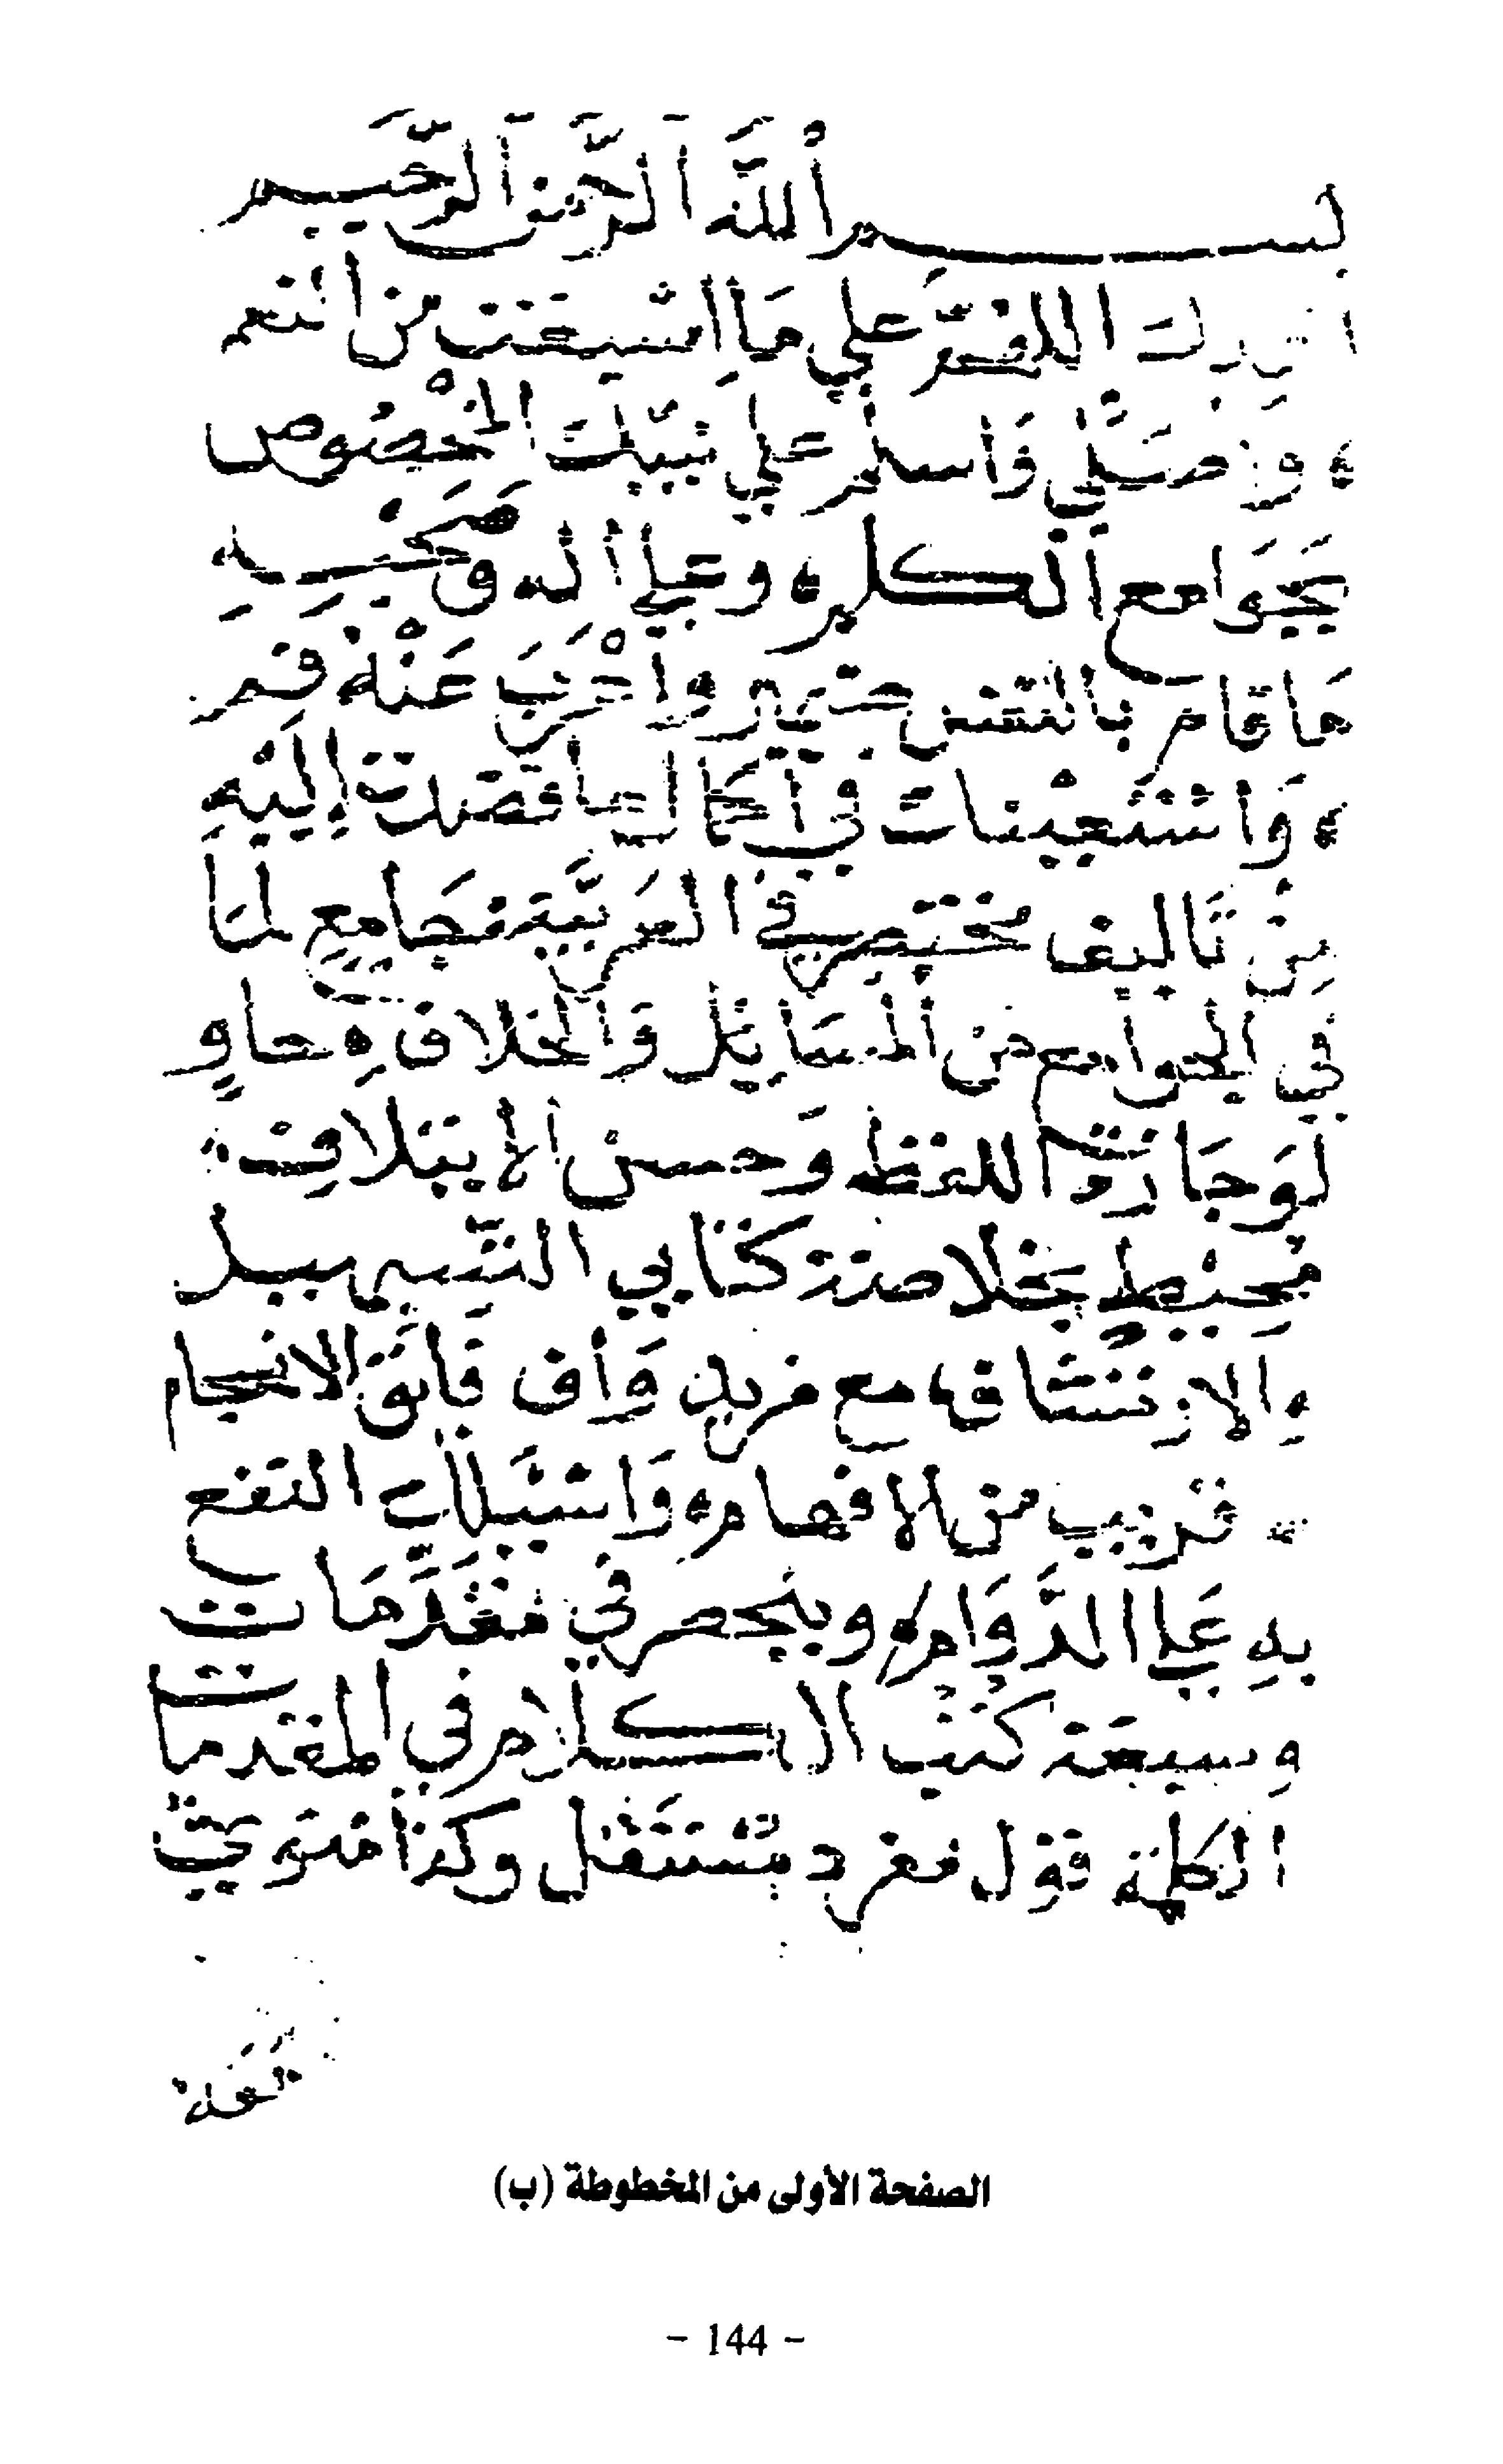 بسم الله الرحمن الرحيم
اللهم على ما اسبغت من النعم
واصلي واسلم على نبيك المخصوص
بجوامع الكلم وعلى اله وصحبه
ما قام بالنفس واعرب عنه فم
واستعينك في اكمال ما قصدت إليه
من تاليف مختصر في العربية جامع لما
في الجوامع من المسايل والخلاف حاو
لوجازة اللفظ وحسن الايتلاف
محيط بخلاصة كتابي التسهيل
والارتشاف مع مزيد واف فايق الانسجام
قريب من الافهام واسيلك النفع
به على الدوام وينحصر في مقدمات
وسبعة كتب الكلام في المقدمات
الكلمة قول مفرد مستقل وكذا منوي
الصفحة الأولى من المخطوطة (ب)
- 144 -